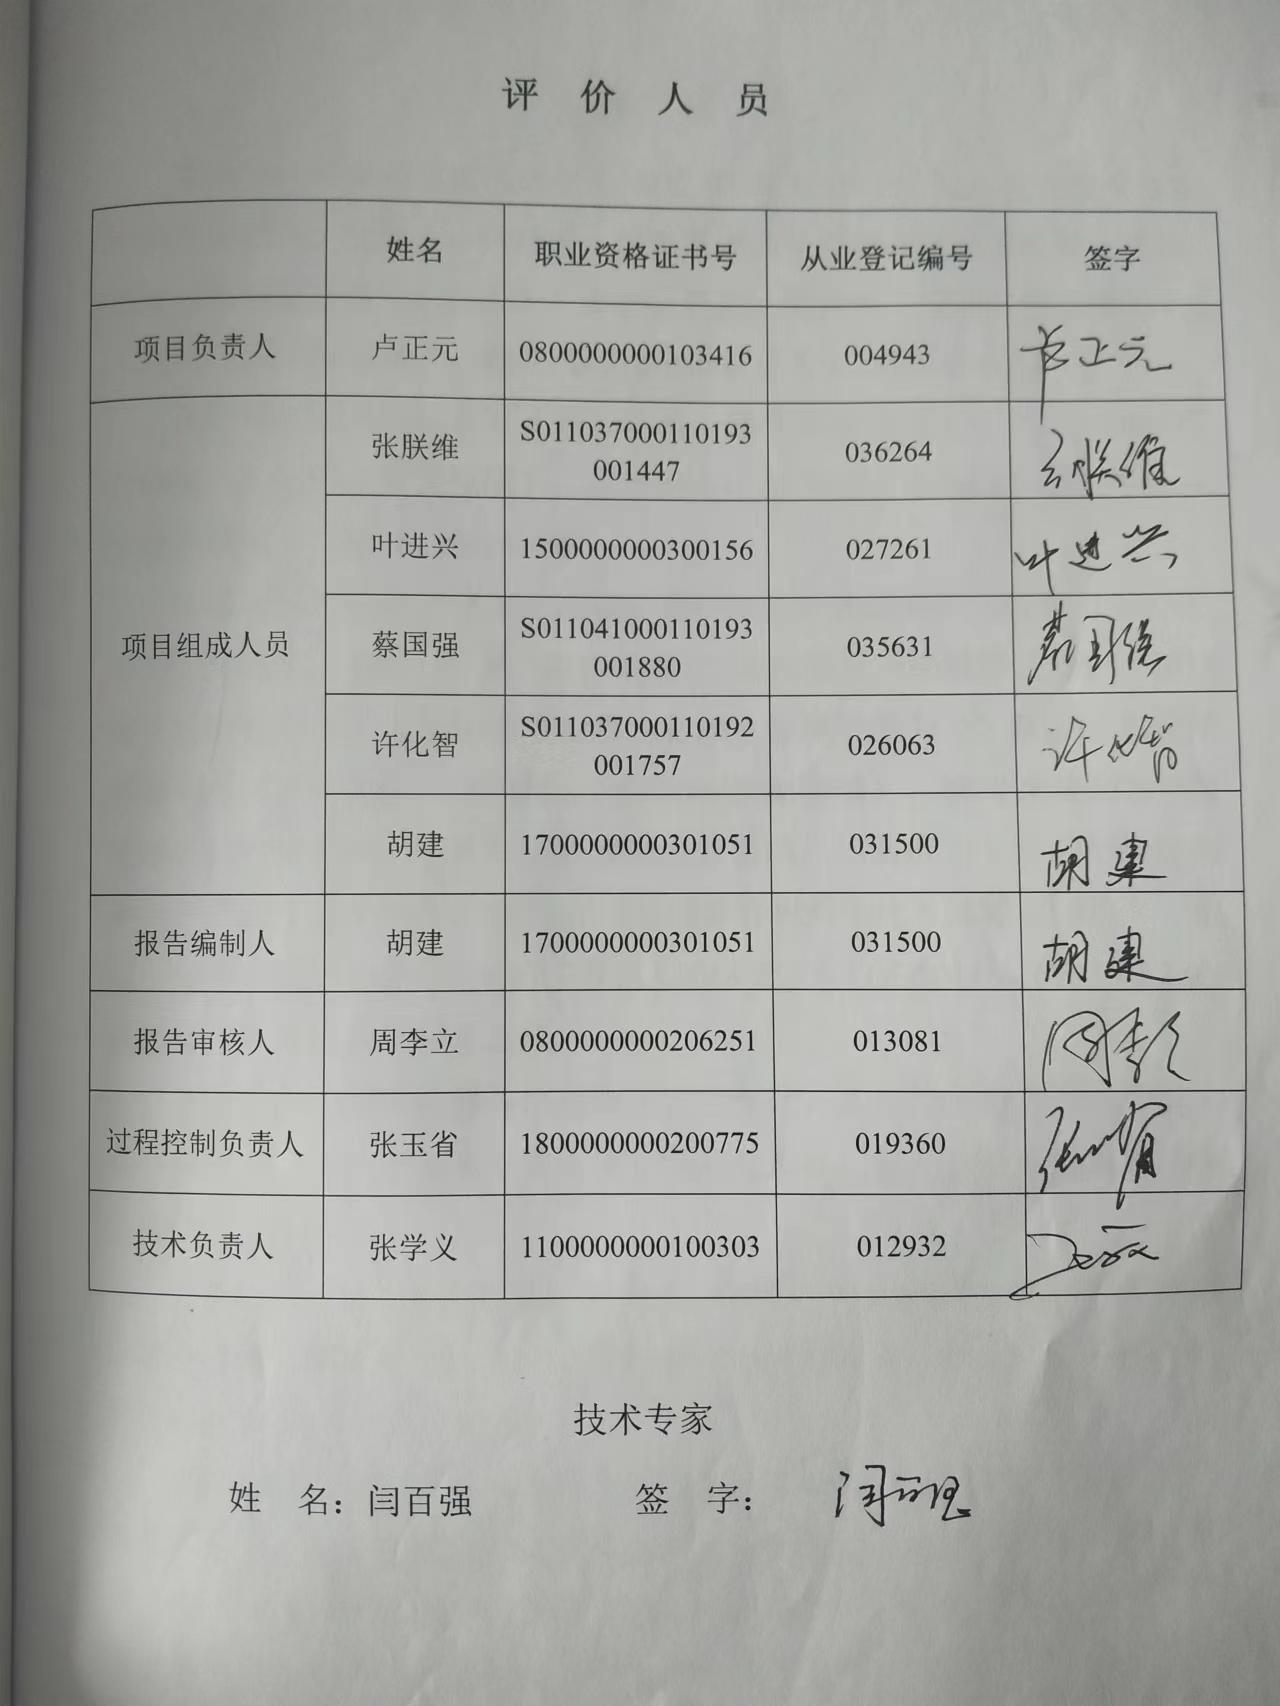 评价人员
姓名 职业资格证书号 从业登记编号 签字
项目负责人 卢正元 0800000000103416 004943 卢正元
项目组成人员
张朕维 S011037000110193001447 036264 张朕维
叶进兴 1500000000300156 027261 叶进兴
蔡国强 S011041000110193001880 035631 蔡国强
许化智 S011037000110192001757 026063 许化智
胡建 1700000000301051 031500 胡建
报告编制人 胡建 1700000000301051 031500 胡建
报告审核人 周李立 0800000000206251 013081
过程控制负责人 张玉省 1800000000200775 019360
技术负责人 张学义 1100000000100303 012932
技术专家
姓 名：闫百强 签 字： 闫百强